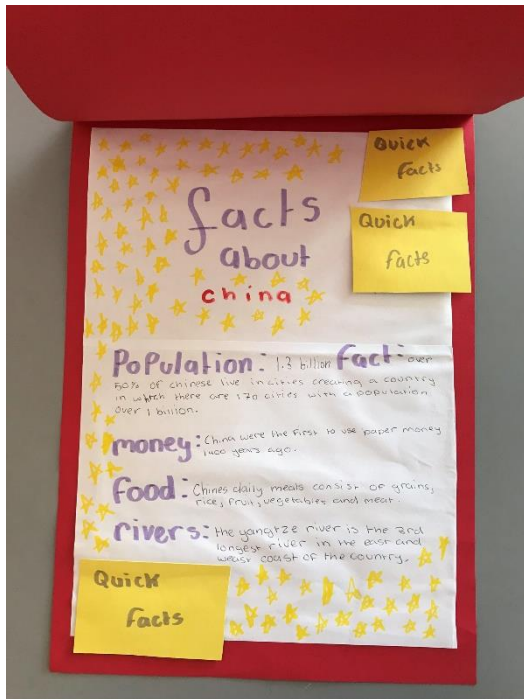 Quick
Facts
Quick
facts
facts
about
china
Population: 1.3 billion Fact: over
50% of chinese live in cities creating a country
in which there are 170 cities with a population
over 1 billion.
money: China were the first to use paper money
1400 years ago.
food: Chines daily meals consist of grains,
rice, fruit, vegetables and meat.
rivers: the yangtze river is the 3rd
longest river in the east and
coast of the country.
Quick
Facts